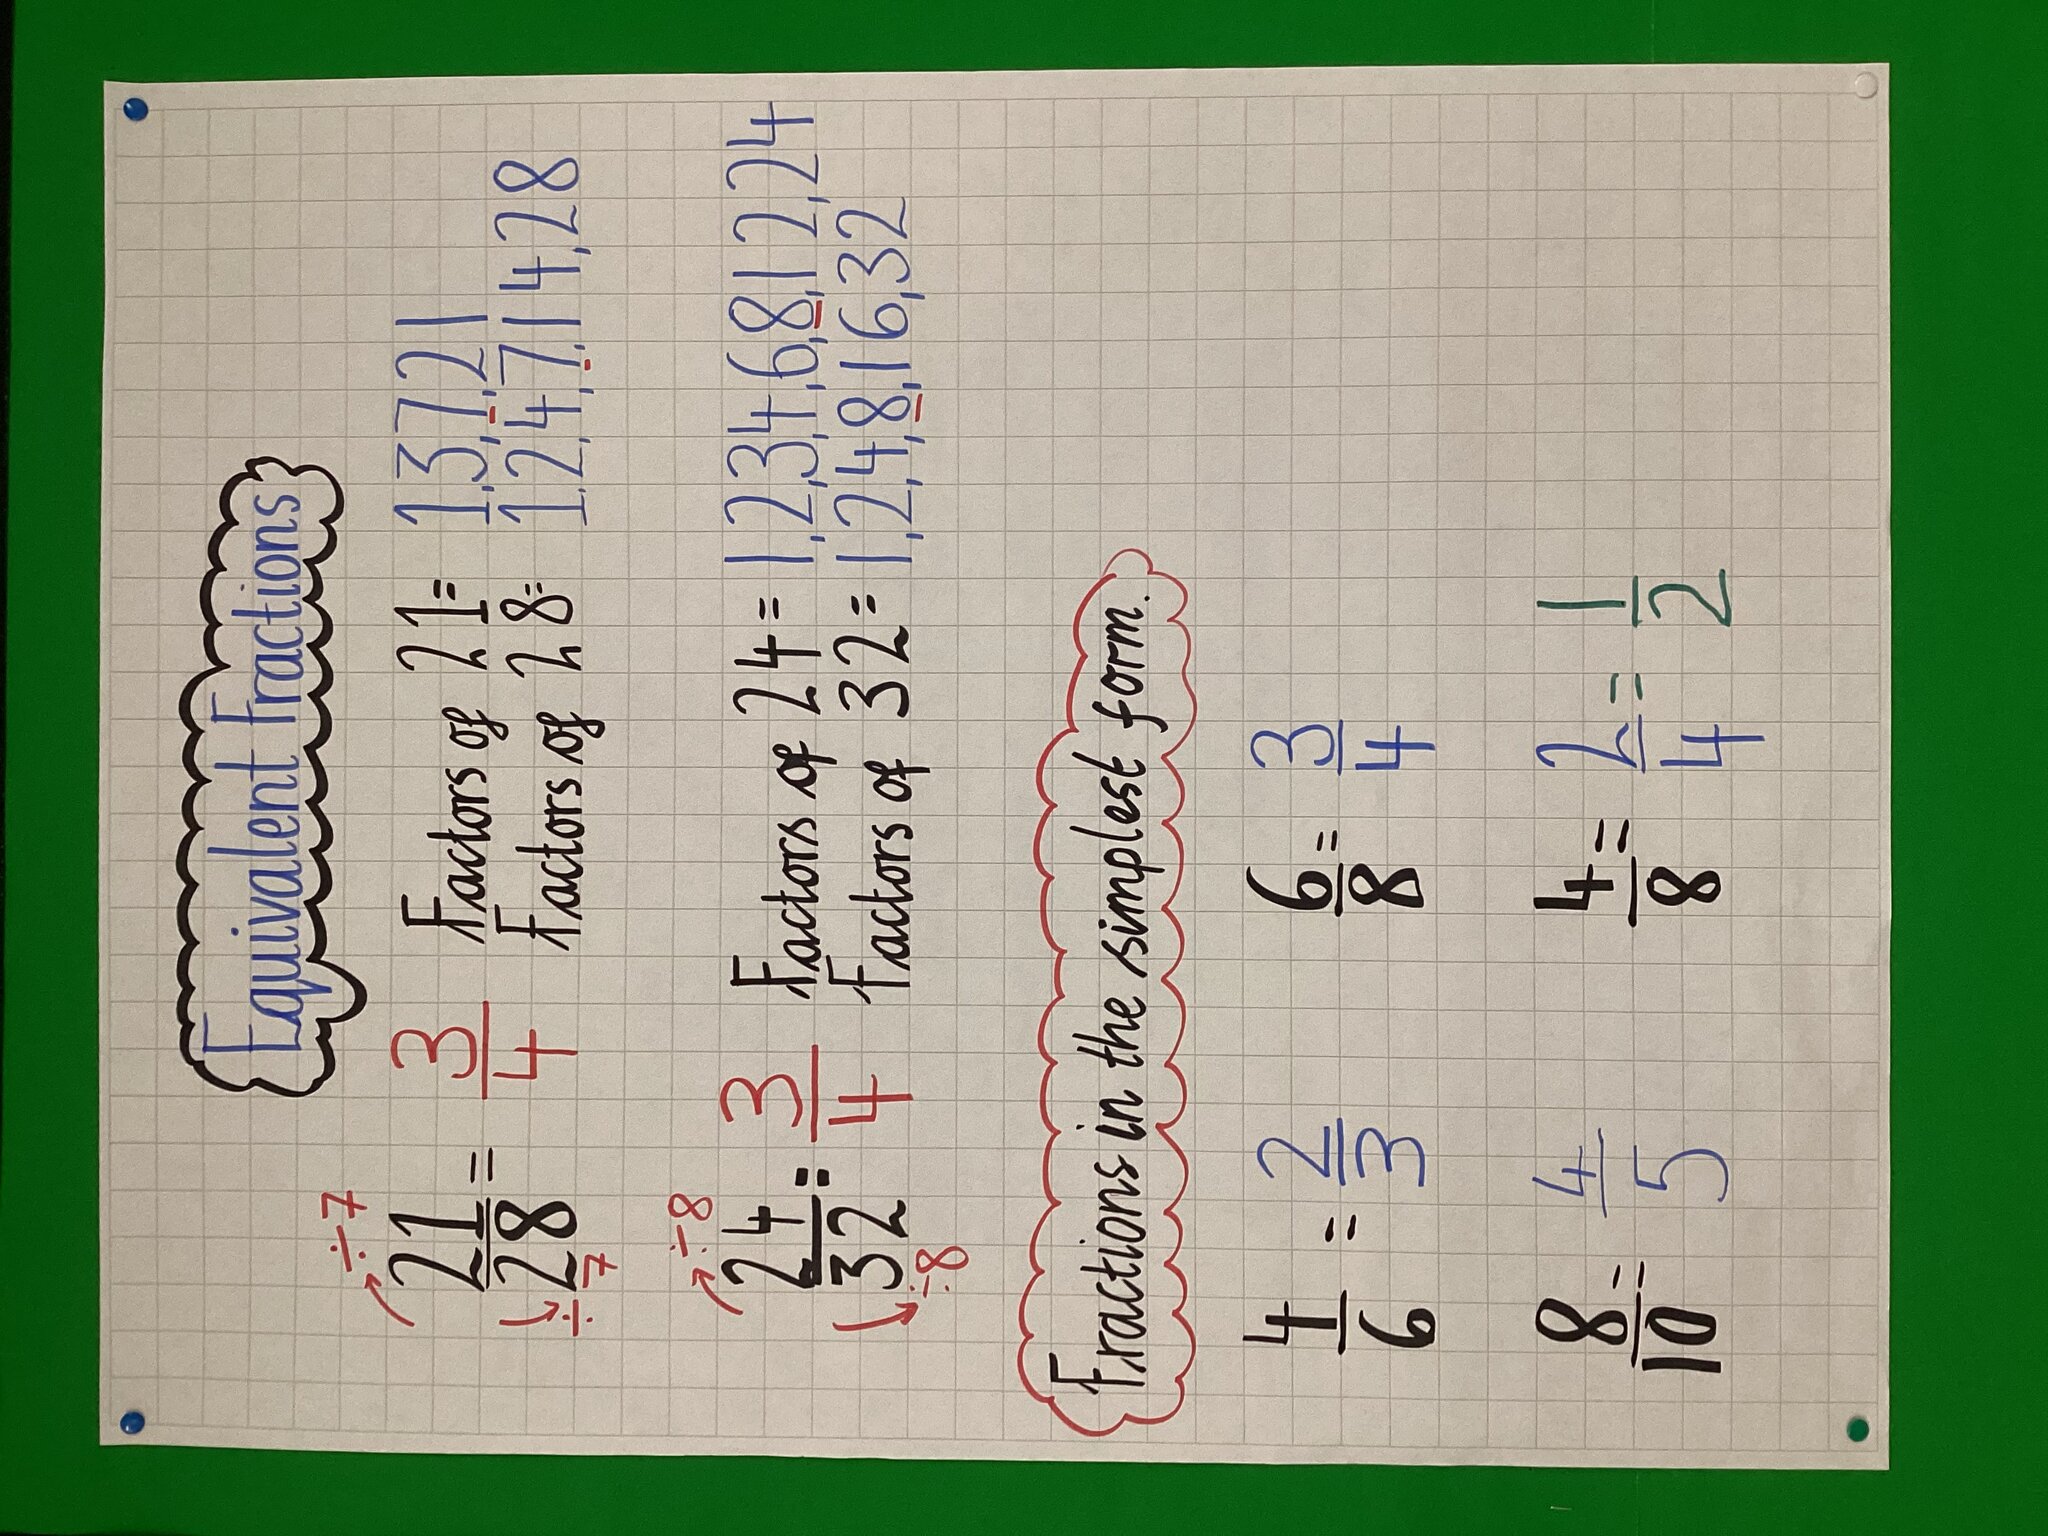 Equivalent Fractions
÷7
21/28 = 3/4
÷7
Factors of 21= 1,3,7,21
Factors of 28= 1,2,4,7,14,28
÷8
24/32 = 3/4
÷8
Factors of 24 = 1,2,3,4,6,8,12,24
Factors of 32 = 1,2,4,8,16,32
Fractions in the simplest form.
4/6 = 2/3
6/8 = 3/4
8/10 = 4/5
4/8 = 2/4 = 1/2